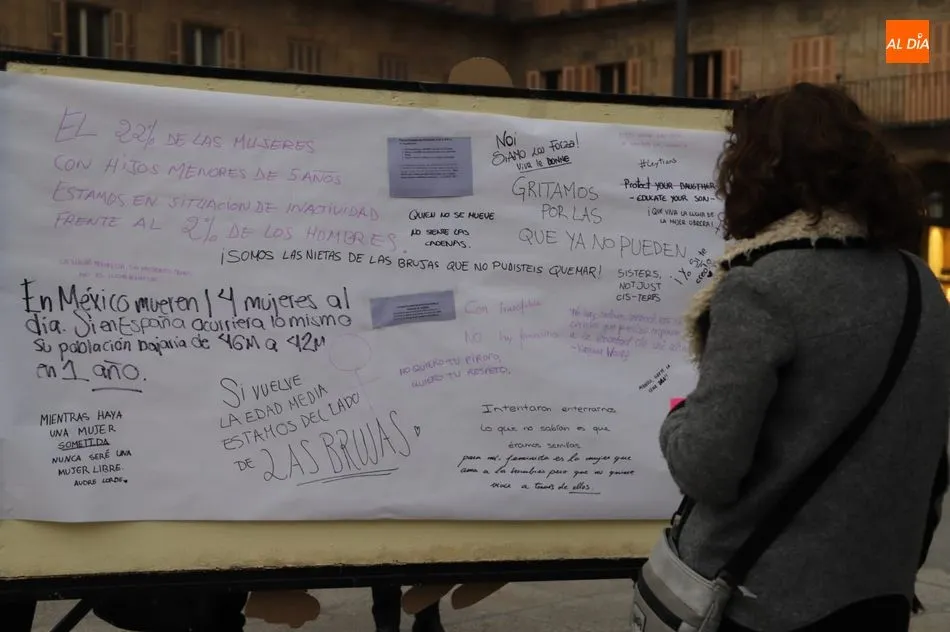 AL DÍA
EL 22% DE LAS MUJERES
CON HIJOS MENORES DE 5 AÑOS
ESTAMOS EN SITUACIÓN DE INACTIVIDAD
FRENTE AL 2% DE LOS HOMBRES.
NOI
SIAMO
FORZA!
VIVA le DONNE
QUIEN NO SE MUEVE
NO SIENTE LAS
CADENAS.
GRITAMOS
POR LAS
QUE YA NO PUEDEN
Protect YOUR DAUGHTER
- EDUCATE YOUR SON -
¡QUE VIVA LA LUCHA DE
LA MUJER OBRERA!
¡SOMOS LAS NIETAS DE LAS BRUJAS QUE NO PUDISTEIS QUEMAR!
SISTERS,
NOT JUST
CIS-TERS
En México mueren 14 mujeres al
día. Si en España ocurriera lo mismo
su población bajaría de 46M a 42M
en 1 año.
Con
NO hay
NO QUIERO TU PIROPO,
QUIERO TU RESPETO.
SI VUELVE
LA EDAD MEDIA
ESTAMOS DEL LADO
DE LAS BRUJAS
MIENTRAS HAYA
UNA MUJER
SOMETIDA
NUNCA SERÉ UNA
MUJER LIBRE.
AUDRE LORDE
Intentaron enterrarnos
lo que no sabían es que
éramos semillas
para mí, feminista es la mujer que
ama a los hombres pero que no quiere
vivir a través de ellos.